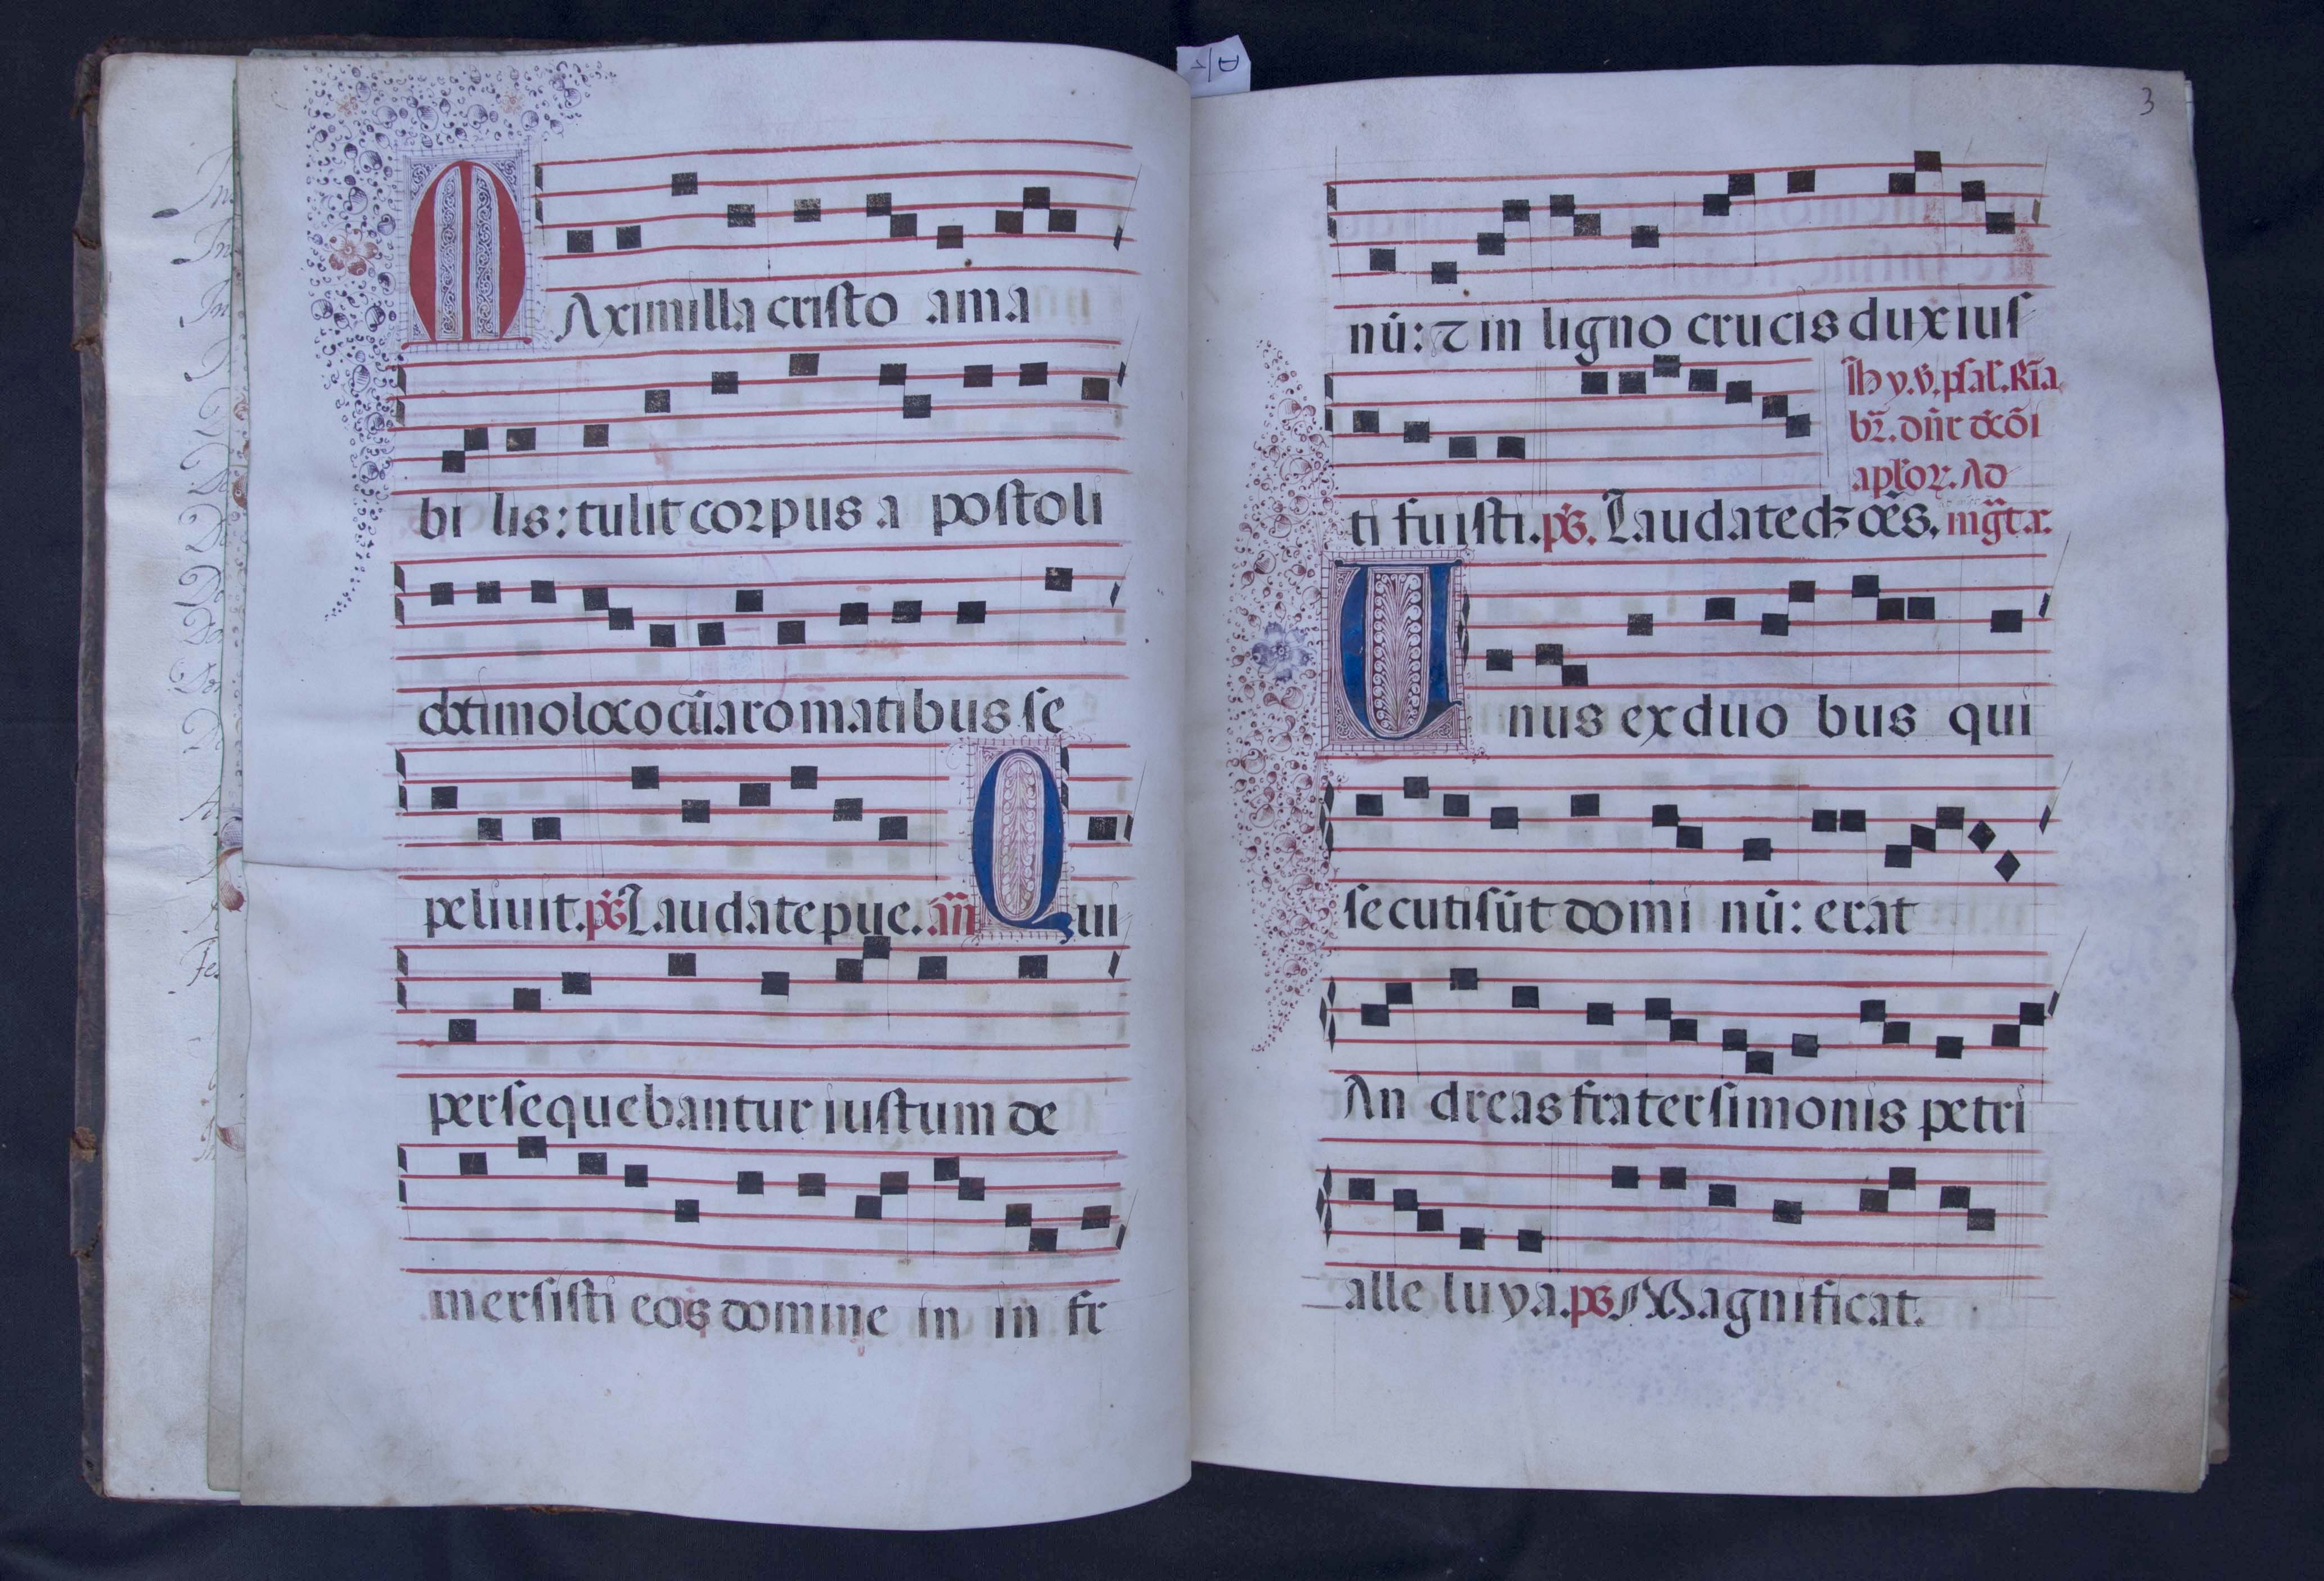 MAximilla cristo ama
bi lis: tulit corpus a postoli
optimo loco cū aromatibus se
peliuit. ps̄ Laudate pue. añ Qui
persequebantur iustum de
mersisti eos domine in in fr
3
nū: ⁊ in ligno crucis dux ius
ti fuisti. ps̄. Laudate
aplōꝝ. Ad
Unus ex duo bus qui
secuti sūt domi nū: erat
An dreas frater simonis petri
alle luya. ps̄ Magnificat.